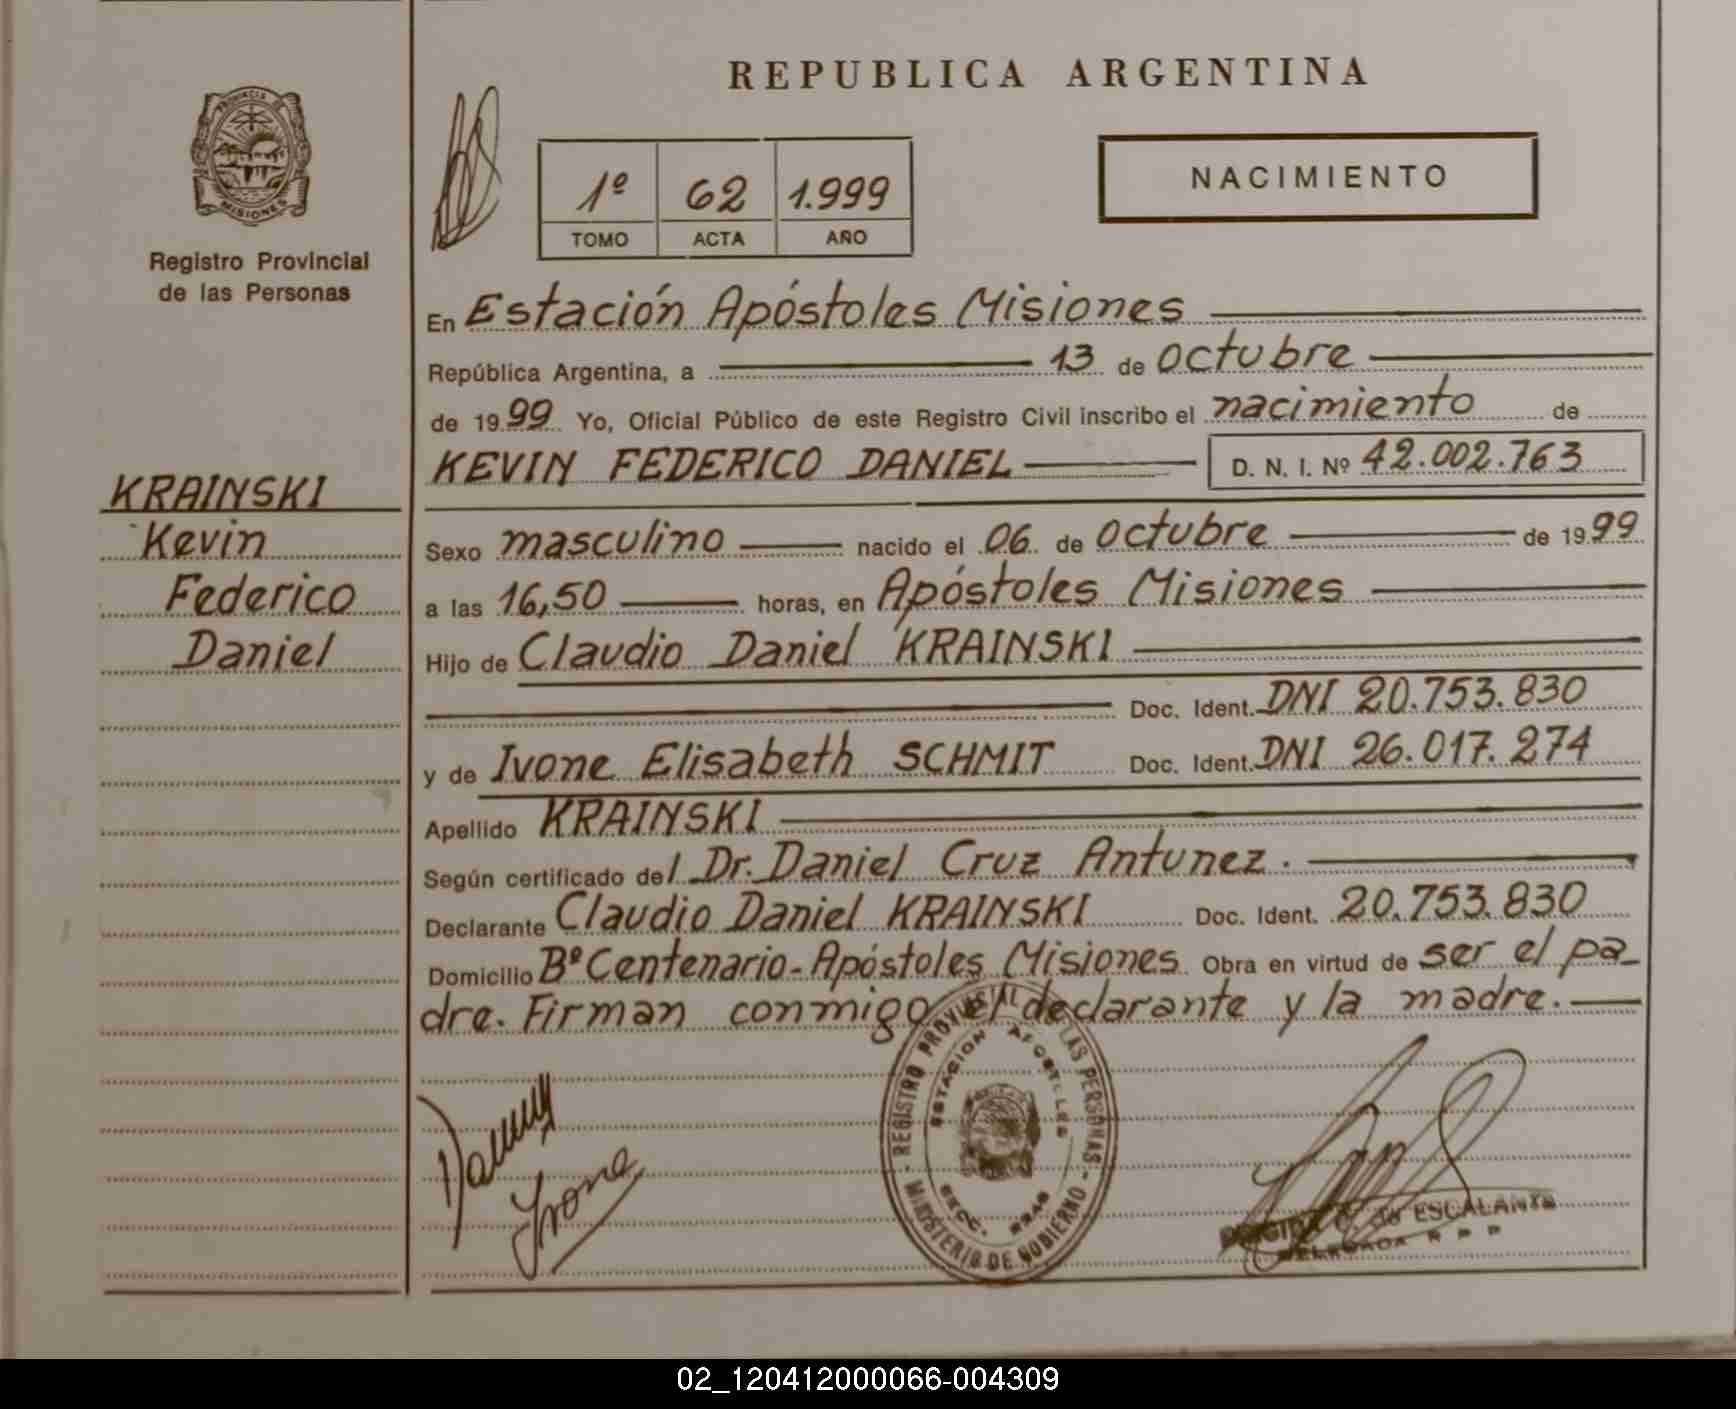 REPUBLICA ARGENTINA
PROVINCIA DE
MISIONES
Registro Provincial
de las Personas
1º 62 1.999
TOMO ACTA AÑO
NACIMIENTO
En Estación Apóstoles Misiones
República Argentina, a 13 de octubre
de 1999 Yo, Oficial Público de este Registro Civil inscribo el nacimiento de
KEVIN FEDERICO DANIEL D. N. I. Nº 42.002.763
KRAINSKI
Kevin
Federico
Daniel
Sexo masculino nacido el 06 de octubre de 1999
a las 16,50 horas, en Apóstoles Misiones
Hijo de Claudio Daniel KRAINSKI
Doc. Ident. DNI 20.753.830
y de Ivone Elisabeth SCHMIT Doc. Ident. DNI 26.017.274
Apellido KRAINSKI
Según certificado del Dr. Daniel Cruz Antunez.
Declarante Claudio Daniel KRAINSKI Doc. Ident. 20.753.830
Domicilio Bº Centenario - Apóstoles Misiones Obra en virtud de ser el pa_
dre. Firman conmigo el declarante y la madre.
Ivone
REGISTRO PROVINCIAL DE LAS PERSONAS - MINISTERIO DE GOBIERNO -
ESTACION APOSTOLES
SECC.
de ESCALANTE
DELEGADA R P P
02_120412000066-004309